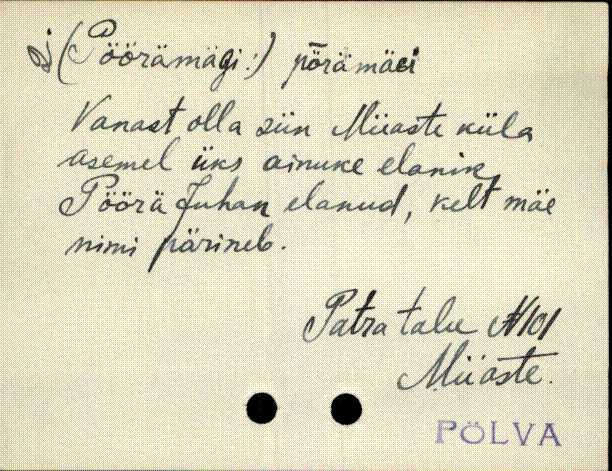 (Pöörämägi:) põrämäei
Vanast olla siin Miiaste küla
asemel üks ainuke elanik
Pöörä Juhan elanud, kelt mäe
nimi pärineb.
Patra talu N 101
Miiaste.
PÕLVA